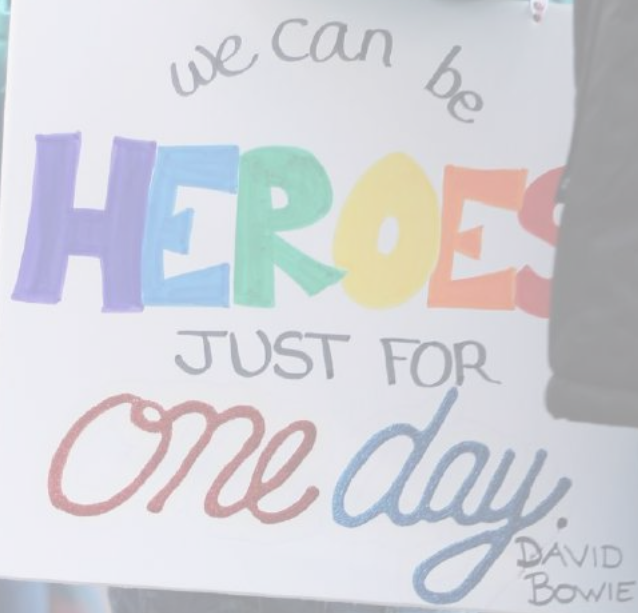 we can be
HEROES
JUST FOR
one day.
DAVID
BOWIE